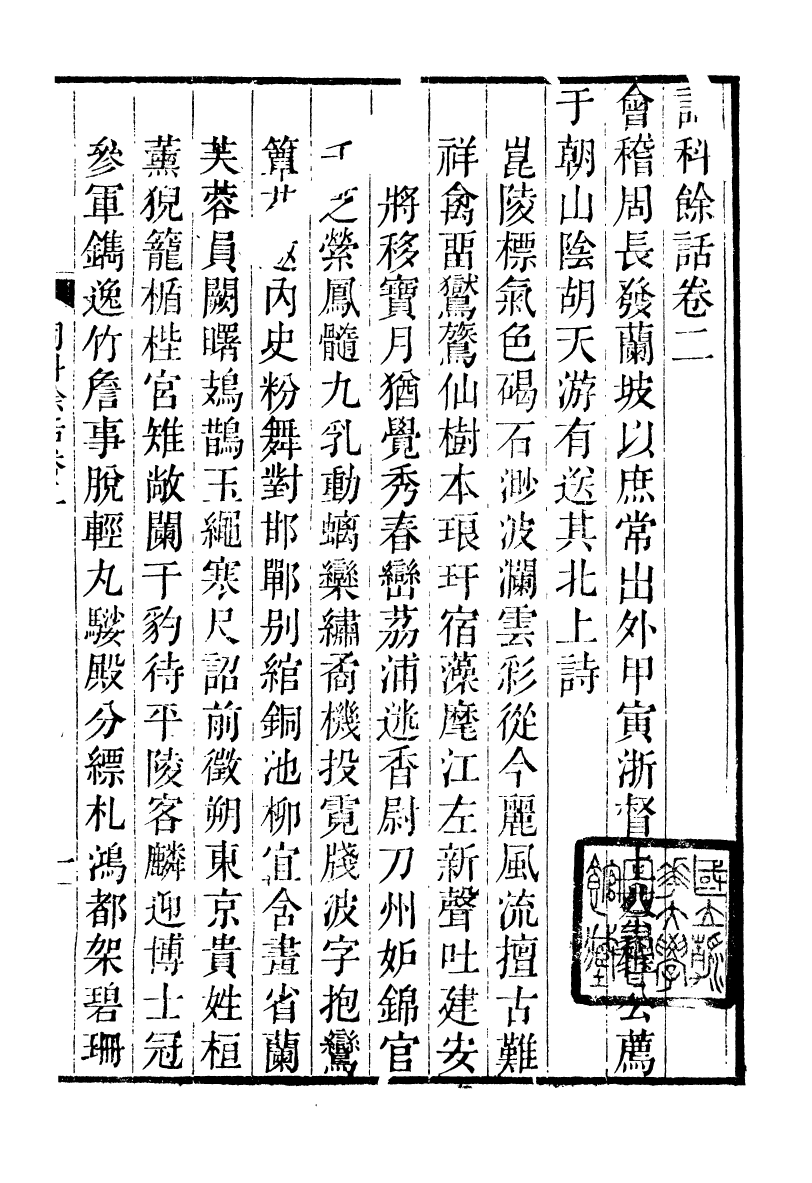 科餘話卷二
會稽周長發蘭坡以庶常出外甲寅浙督公薦
于朝山陰胡天游有送其北上詩
崑陵標氣色碣石渺波瀾雲彩從今麗風流擅古難
祥禽臿鸑鷟仙樹本琅玕宿藻麾江左新聲吐建安
將移寶月猶覺秀春巒荔浦逃香尉刀州妒錦官
芝縈鳳髓九乳動螭欒繡矞機投霓牋波字抱鸞
簟內史粉舞對邯鄲別綰銅池柳宜含畫省蘭
芙蓉員闕曙鳷鵲玉繩寒尺詔前徵朔東京貴姓桓
薰猊籠楯桂宮雉敞闌干豹待平陵客麟迎博士冠
參軍鐫逸竹詹事脫輕丸駿殿分縹札鴻都架碧珊
國立清華大學圖書館藏